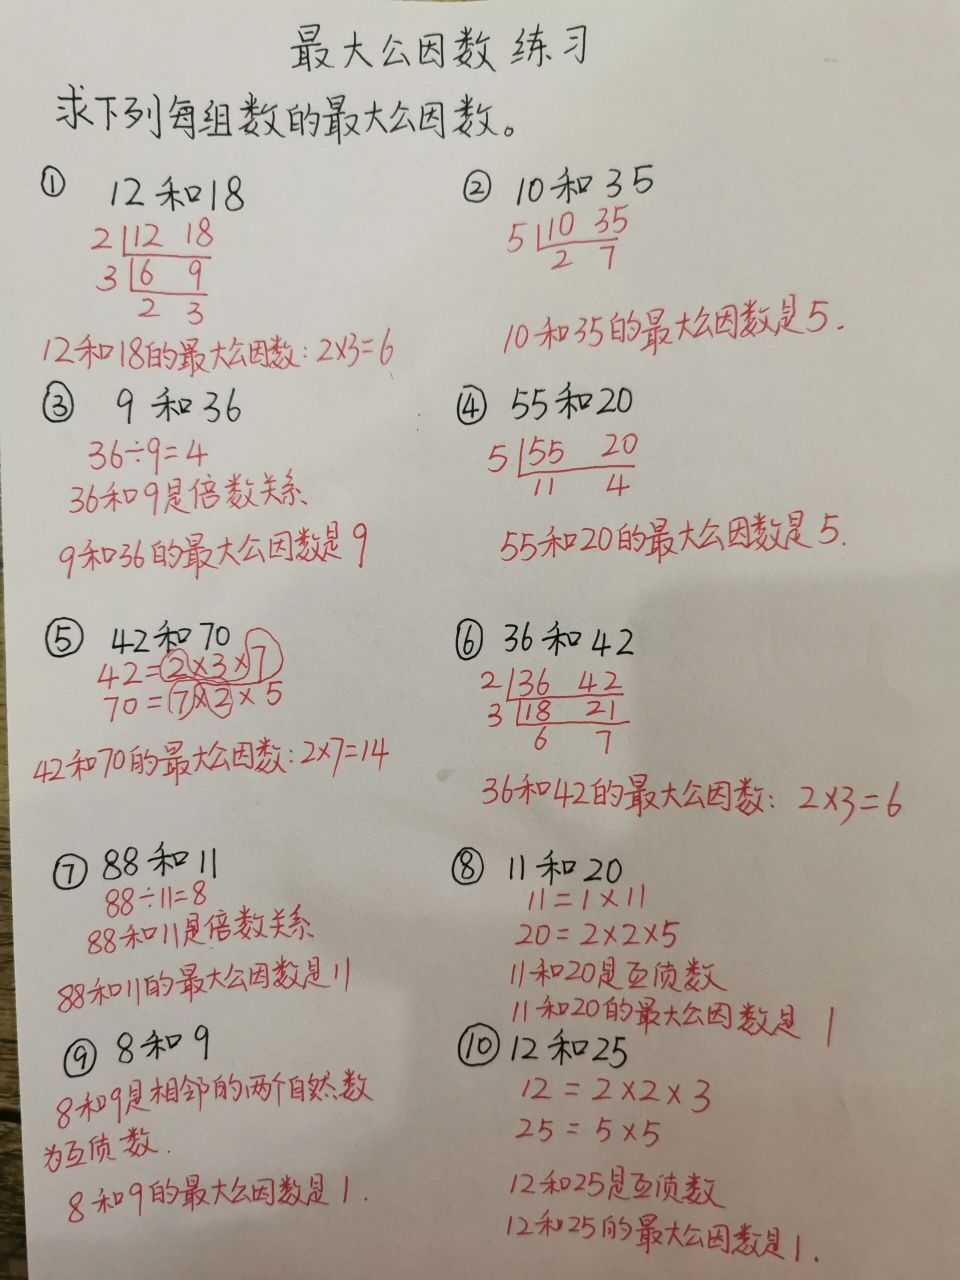 最大公因数 练习
求下列每组数的最大公因数。
① 12和18
2 12 18
3 6 9
2 3
12和18的最大公因数:2×3=6
② 10和35
5 10 35
2 7
10和35的最大公因数是5.
③ 9和36
36÷9=4
36和9是倍数关系
9和36的最大公因数是9
④ 55和20
5 55 20
11 4
55和20的最大公因数是5.
⑤ 42和70
42=2×3×7
70=7×2×5
42和70的最大公因数:2×7=14
⑥ 36和42
2 36 42
3 18 21
6 7
36和42的最大公因数:2×3=6
⑦ 88和11
88÷11=8
88和11是倍数关系
88和11的最大公因数是11
⑧ 11和20
11=1×11
20=2×2×5
11和20是互质数
11和20的最大公因数是 1
⑨ 8和9
8和9是相邻的两个自然数
为互质数.
8和9的最大公因数是1.
⑩ 12和25
12=2×2×3
25=5×5
12和25是互质数
12和25的最大公因数是1.